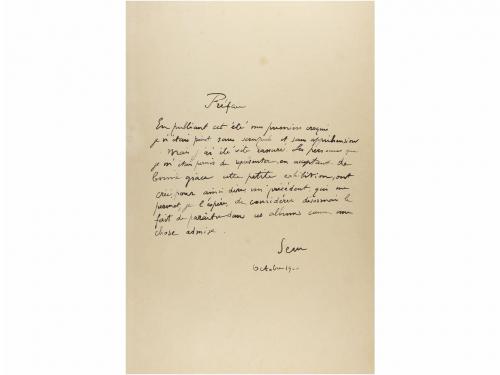 Préface
En publiant cet été mes premiers croquis
je n'étais point sans scrupule et sans appréhension
mais j'ai été vite rassuré. Les personnes que
je m'étais permis de représenter, en acceptant de
bonne grâce cette petite exhibition, ont
créé, pour ainsi dire, un précédent qui me
permet, je l'espère, de considérer désormais le
fait de paraître dans ces albums comme une
chose admise.
Sem
Octobre 19